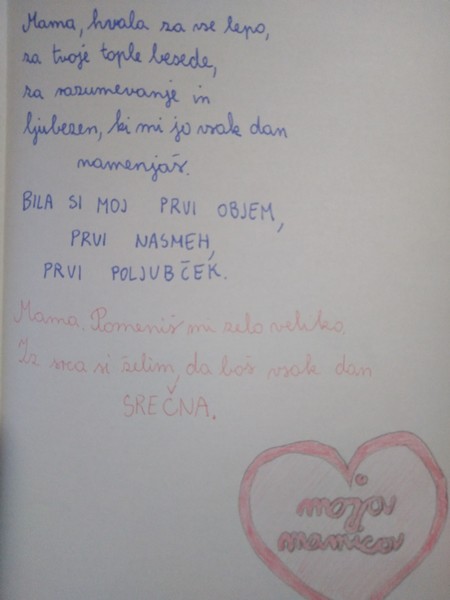 Mama, hvala za vse lepo,
za tvoje tople besede,
za razumevanje in
ljubezen, ki mi jo vsak dan
namenjaš.
BILA SI MOJ PRVI OBJEM,
PRVI NASMEH,
PRVI POLJUBČEK.
Mama. Pomeniš mi zelo veliko.
Iz srca si želim, da boš vsak dan
SREČNA.
moja
mamica